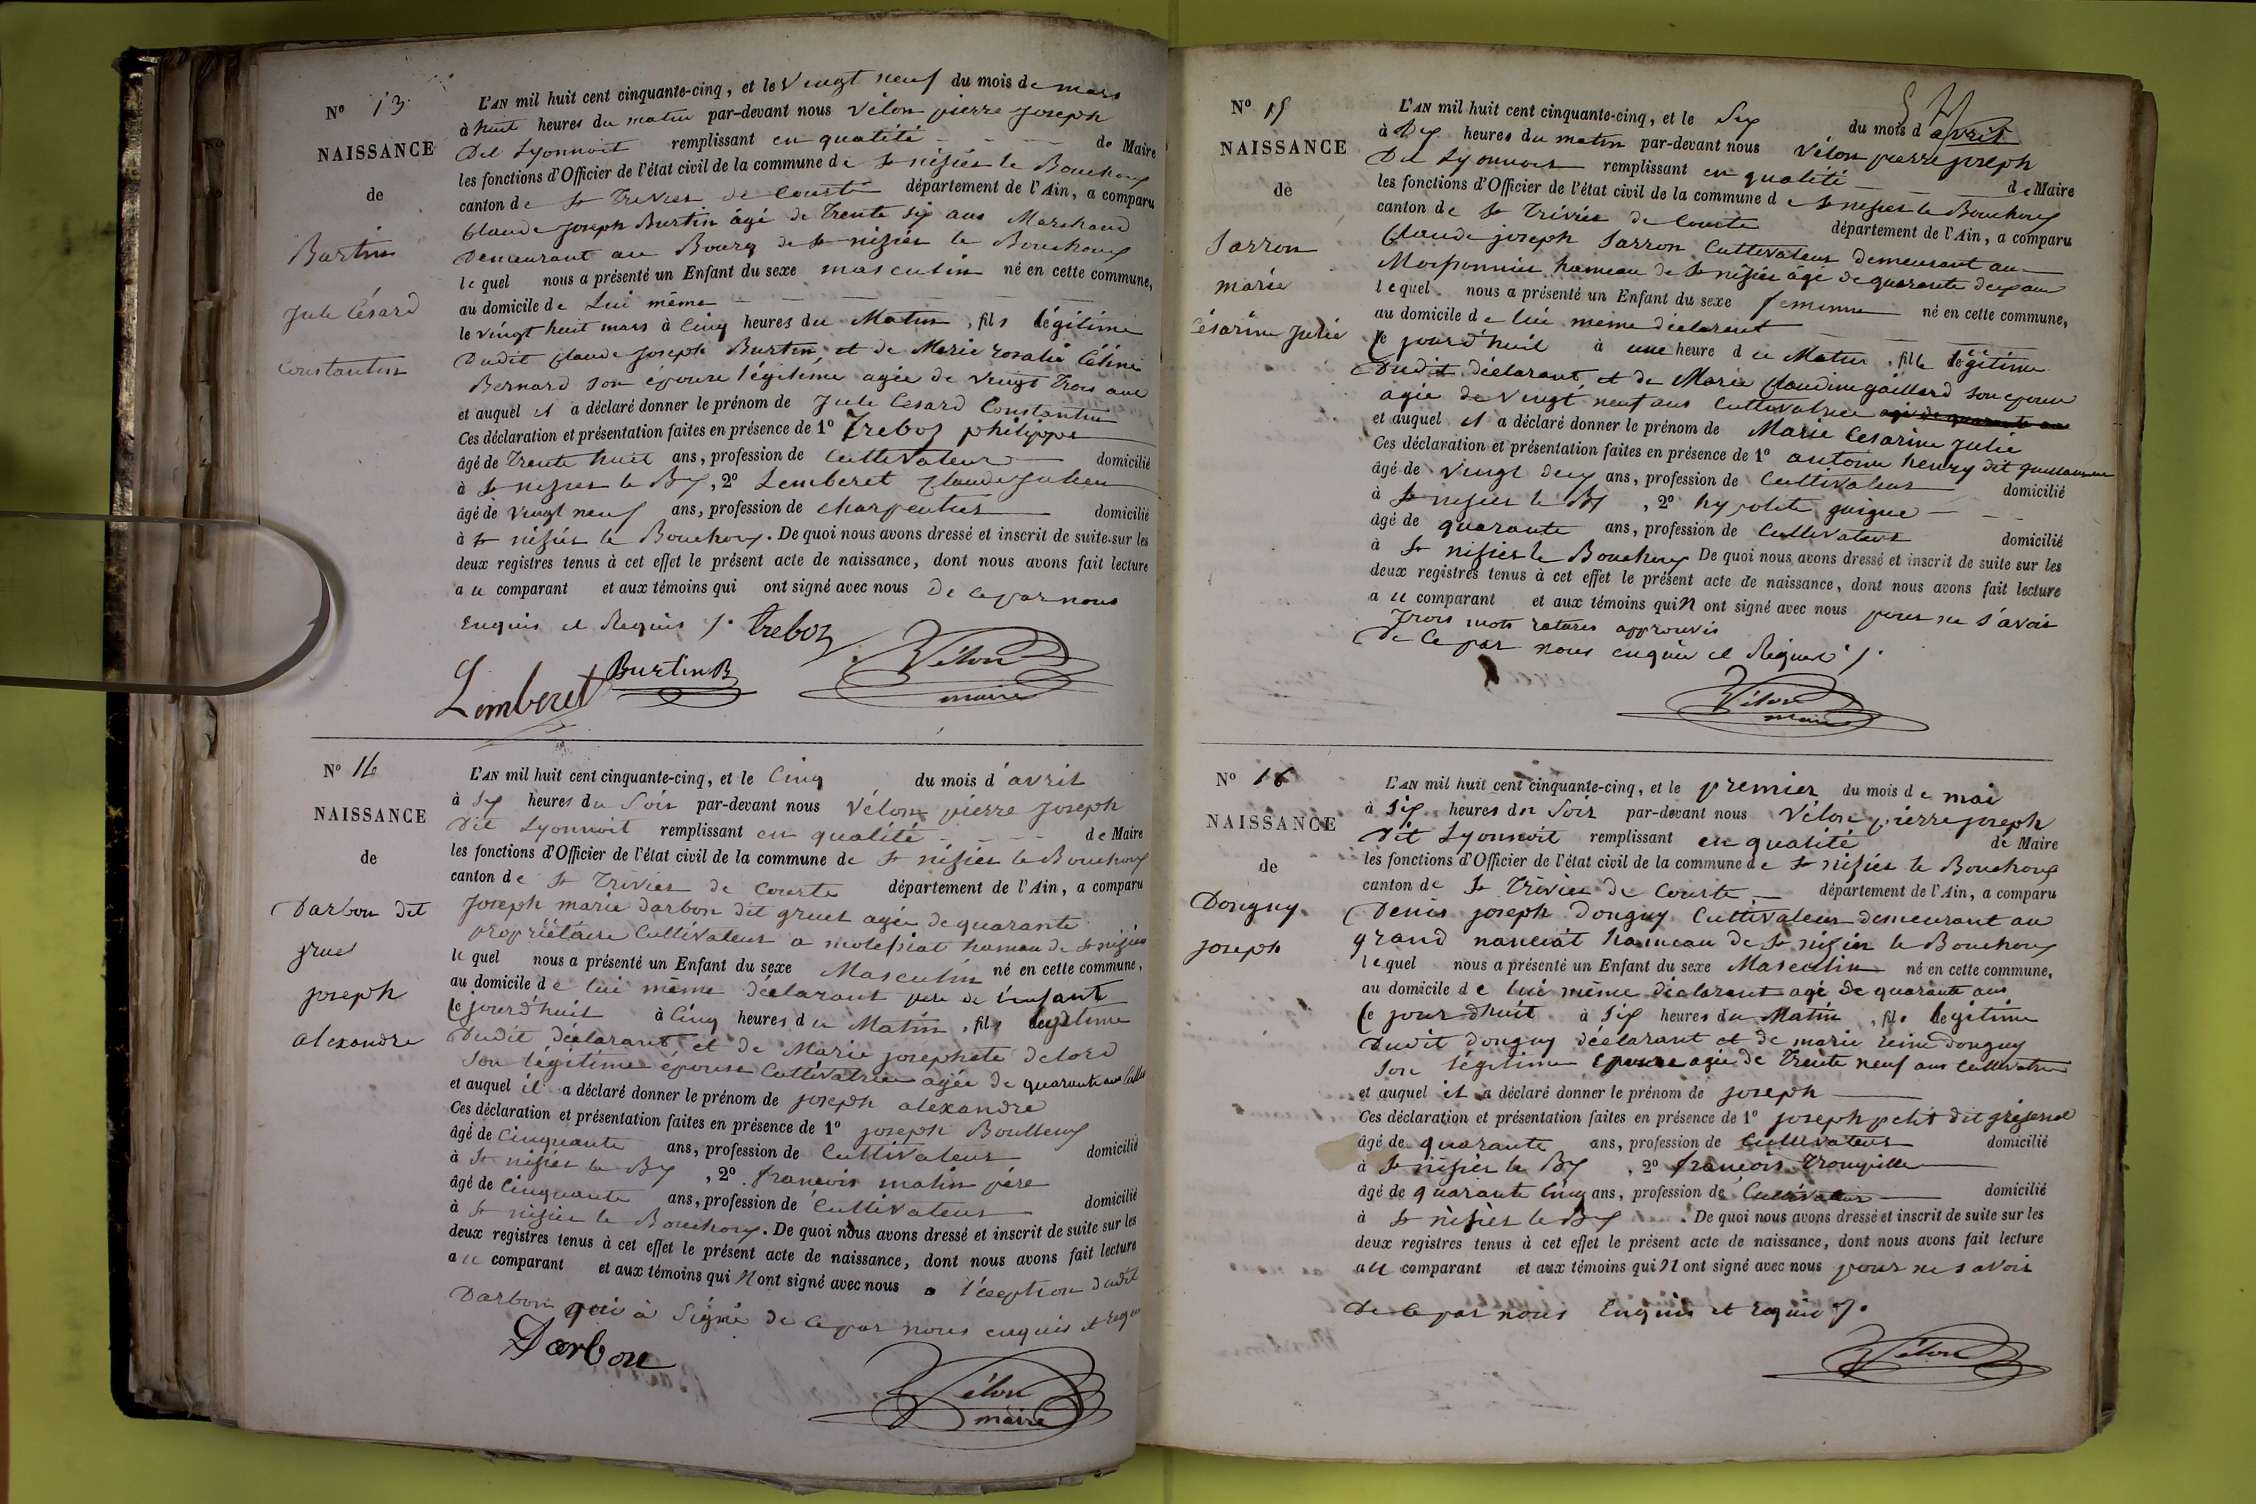 N° 13
NAISSANCE
de
Burtin
Jule Césard
Constantin
L'AN mil huit cent cinquante-cinq, et le vingt neuf du mois de mars
à huit heures du matin par-devant nous Vélon pierre Joseph
Dit Lyonnoit remplissant en qualité de Maire
les fonctions d'Officier de l'état civil de la commune de St nisier le Bouchoux
canton de St Trivier de Courte département de l'Ain, a comparu
Claude joseph Burtin âgé de Trente six ans Marchand
Demeurant au Bourg de St nisier le Bouchoux
lequel nous a présenté un Enfant du sexe masculin né en cette commune,
au domicile de Lui même
le vingt huit mars à Cinq heures du Matin, fils légitime
Dudit Claude Joseph Burtin, et de Marie rosalie Céline
Bernard son épouse légitime agée de vingt Trois ans
et auquel il a déclaré donner le prénom de Jule Césard Constantin
Ces déclaration et présentation faites en présence de 1° Treboz philippe
âgé de Trente huit ans, profession de Cultivateur domicilié
à St nisier le Bx, 2° Lemberet Claude Julien
âgé de vingt neuf ans, profession de charpentier domicilié
à St nisier le Bouchoux. De quoi nous avons dressé et inscrit de suite sur les
deux registres tenus à cet effet le présent acte de naissance, dont nous avons fait lecture
au comparant et aux témoins qui ont signé avec nous de ce par nous
Enquis et Requis /. treboz
Lemberet Burtin B Vélon
maire
N° 14
NAISSANCE
de
Darbon dit
gruet
joseph
alexandre
L'AN mil huit cent cinquante-cinq, et le Cinq du mois d'avril
à Six heures du Soir par-devant nous Vélon pierre Joseph
Dit Lyonnoit remplissant en qualité de Maire
les fonctions d'Officier de l'état civil de la commune de St nisier le Bouchoux
canton de St Trivier de Courte département de l'Ain, a comparu
Joseph marie Darbon dit gruet agée de quarante
propriétaire Cultivateur a molessiat hameau de St nisier
lequel nous a présenté un Enfant du sexe Masculin né en cette commune,
au domicile de lui même déclarant père de l'enfant
ce jourd'huit à Cinq heures du Matin, fils legitime
Dudit déclarant et de Marie josephete delord
Son légitime épouse Cultivatrice agée de quarante ans
et auquel il a déclaré donner le prénom de joseph alexandre
Ces déclaration et présentation faites en présence de 1° joseph Boulleux
âgé de Cinquante ans, profession de Cultivateur domicilié
à St nisier le Bx, 2° françois matin père
âgé de Cinquante ans, profession de Cultivateur domicilié
à St nisier le Bouchoux. De quoi nous avons dressé et inscrit de suite sur les
deux registres tenus à cet effet le présent acte de naissance, dont nous avons fait lecture
au comparant et aux témoins qui N ont signé avec nous a l'eception dudit
Darbon qui à Signé de ce par nous enquis et requis
Darbon
Vélon
maire
54
N° 15
NAISSANCE
de
Sarron
marie
Césarine Julie
L'AN mil huit cent cinquante-cinq, et le Six du mois d avril
à Dix heures du matin par-devant nous Vélon pierre joseph
Dit Lyonnoit remplissant en qualité de Maire
les fonctions d'Officier de l'état civil de la commune de St nisier le Bouchoux
canton de St Trivier de Courte département de l'Ain, a comparu
Claude joseph Sarron Cultivateur demeurant au
Moissonnier hameau de St nisier âgé de quarante deux ans
lequel nous a présenté un Enfant du sexe feminin né en cette commune,
au domicile de lui même déclarant
ce jourd'huit à une heure du Matin, fille légitime
Dudit déclarant, et de Marie Claudine gaillard son epouse
agée de vingt neuf ans Cultivatrice agé de quarante ans
et auquel il a déclaré donner le prénom de Marie Césarine Julie
Ces déclaration et présentation faites en présence de 1° antoine henry dit guillaume
âgé de vingt deux ans, profession de Cultivateur domicilié
à St nisier le Bx, 2° hypolite guigue
âgé de quarante ans, profession de Cultivateur domicilié
à St nisier le Bouchoux De quoi nous avons dressé et inscrit de suite sur les
deux registres tenus à cet effet le présent acte de naissance, dont nous avons fait lecture
au comparant et aux témoins qui N ont signé avec nous pour ne s'avoir
Trois mots raturés approuvés
De Ce par nous enquis et Requis /.
Vélon
maire
N° 16
NAISSANCE
de
Donguy
joseph
L'AN mil huit cent cinquante-cinq, et le premier du mois de mai
à Six heures du Soir par-devant nous Vélon pierre joseph
Dit Lyonnoit remplissant en qualité de Maire
les fonctions d'Officier de l'état civil de la commune de St nisier le Bouchoux
canton de St Trivier de Courte département de l'Ain, a comparu
Denis joseph Donguy Cultivateur demeurant au
grand nanciat hameau de St nisier le Bouchoux
lequel nous a présenté un Enfant du sexe Masculin né en cette commune,
au domicile de lui même déclarant agé de quarante ans
ce jour d'huit à Six heures du Matin, fils légitime
Dudit donguy déclarant et de marie reine donguy
Son légitime épouse agée de Trente neuf ans Cultivatrice
et auquel il a déclaré donner le prénom de joseph
Ces déclaration et présentation faites en présence de 1° joseph petit dit
âgé de quarante ans, profession de Cultivateur domicilié
à St nisier le Bx, 2° françois
âgé de quarante Cinq ans, profession de Cultivateur domicilié
à St nisier le Bx. De quoi nous avons dressé et inscrit de suite sur les
deux registres tenus à cet effet le présent acte de naissance, dont nous avons fait lecture
au comparant et aux témoins qui N ont signé avec nous pour ne savoir
De Ce par nous Enquis et requis /.
Vélon